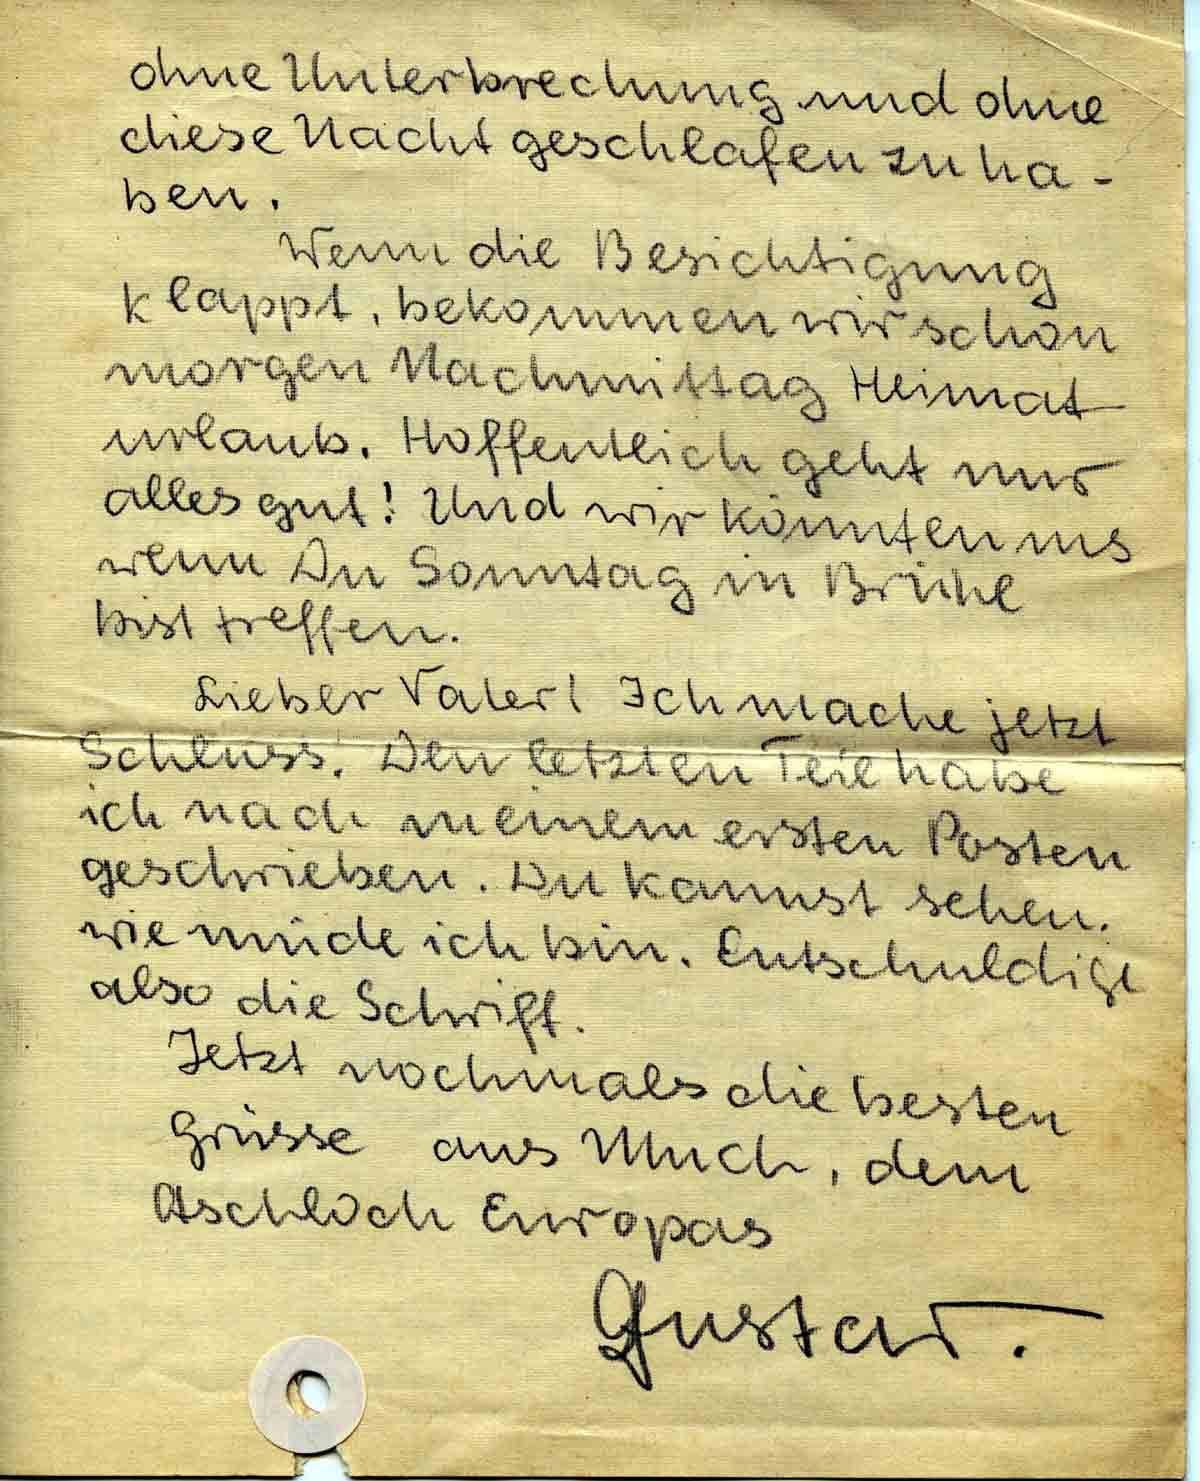 ohne Unterbrechung und ohne
diese Nacht geschlafen zu ha-
ben.
Wenn die Besichtigung
klappt, bekommen wir schon
morgen Nachmittag Heimat
urlaub. Hoffentlich geht nur
alles gut! Und wir könnten uns
wenn Du Sonntag in Brühl
bist treffen.
Lieber Vater! Ich mache jetzt
Schluss. Den letzten Teil habe
ich nach meinem ersten Posten
geschrieben. Du kannst sehen.
wie müde ich bin. Entschuldige
also die Schrift.
Jetzt nochmals die besten
Grüsse aus Much, dem
Aschloch Europas
Gustav.